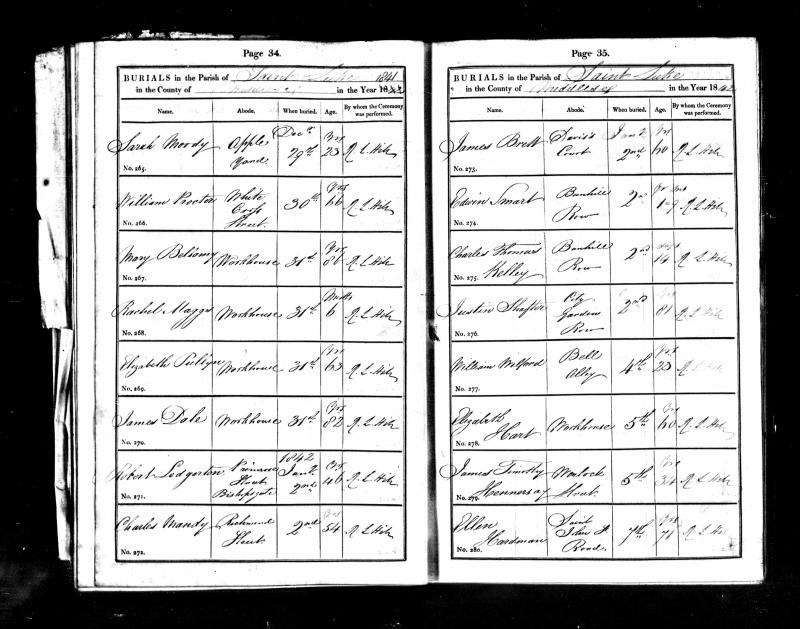 Page 34.
BURIALS in the Parish of Saint Luke 1841
in the County of Middlesex in the Year 18
Name. Abode. When buried. Age. By whom the Ceremony was performed.
Sarah Moody Apple Yard Decr 29th Yrs 23
No. 265.
William Procter White Cross Street 30th Yrs 66
No. 266.
Mary Workhouse 31st Yrs 86
No. 267.
Rachel Maggs Workhouse 31st Months 6
No. 268.
Elizabeth Pullyn Workhouse 31st Yrs 63
No. 269.
James Dale Workhouse 31st Yrs 82
No. 270.
Robert Ledgerton Primrose Street Bishopsgate 1842 Jany 2nd Yrs 46
No. 271.
Charles Mandy Richmond Street 2nd Yrs 54
No. 272.
Page 35.
BURIALS in the Parish of Saint Luke
in the County of Middlesex in the Year 1842
Name. Abode. When buried. Age. By whom the Ceremony was performed.
James Brett Davis's Court Jany 2nd Yrs 60
No. 273.
Edwin Smart Bunhill Row 2nd
No. 274.
Charles Thomas Kelley Bunhill Row 2nd 14
No. 275.
Justin Shafter City Gardens Row 2nd 81
No. 276.
William Welford Bell Alley 4th Yrs 23
No. 277.
Elizabeth Hart Workhouse 5th Yrs 60
No. 278.
James Timothy Hennersay Wenlock Street 5th Yrs 34
No. 279.
Ellen Hardman Saint John St Road 7th Yrs 71
No. 280.